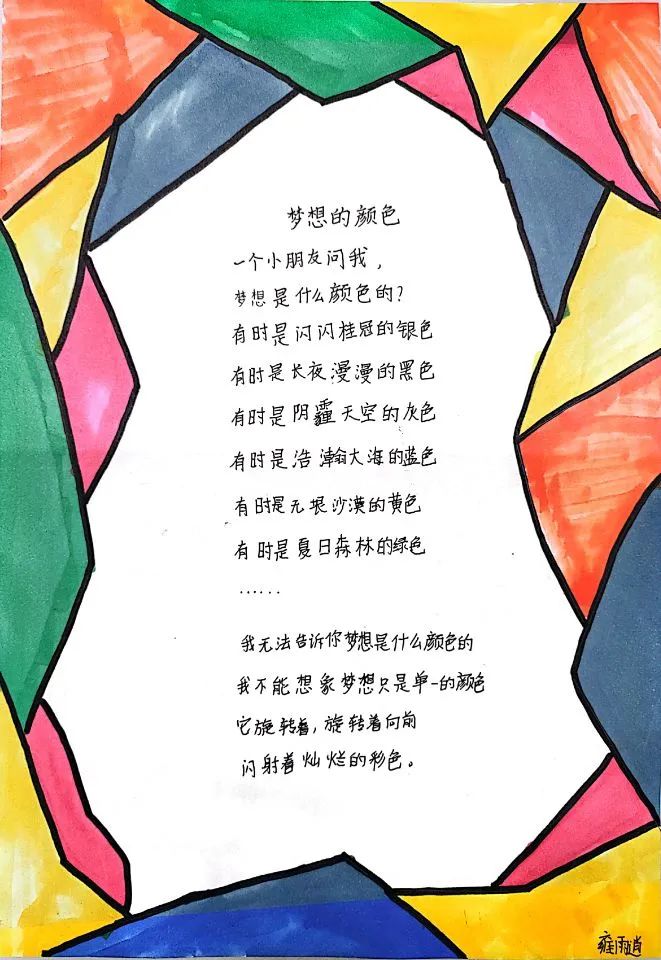 梦想的颜色
一个小朋友问我，
梦想是什么颜色的？
有时是闪闪桂冠的银色
有时是长夜漫漫的黑色
有时是阴霾天空的灰色
有时是浩瀚大海的蓝色
有时是无垠沙漠的黄色
有时是夏日森林的绿色
……
我无法告诉你梦想是什么颜色的
我不能想象梦想只是单一的颜色
它旋转着，旋转着向前
闪射着灿烂的彩色。